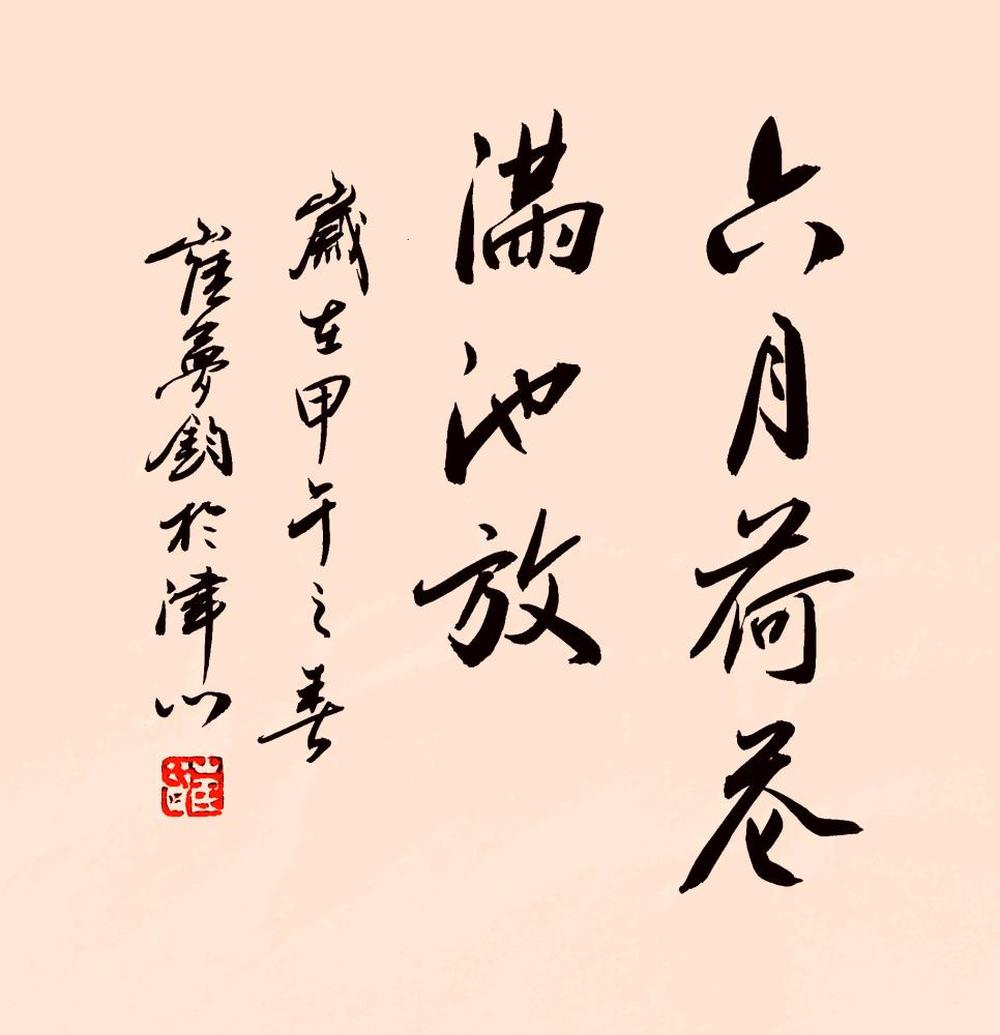 六月荷花
滿池放
歲在甲午之春
崔夢鈞於津门